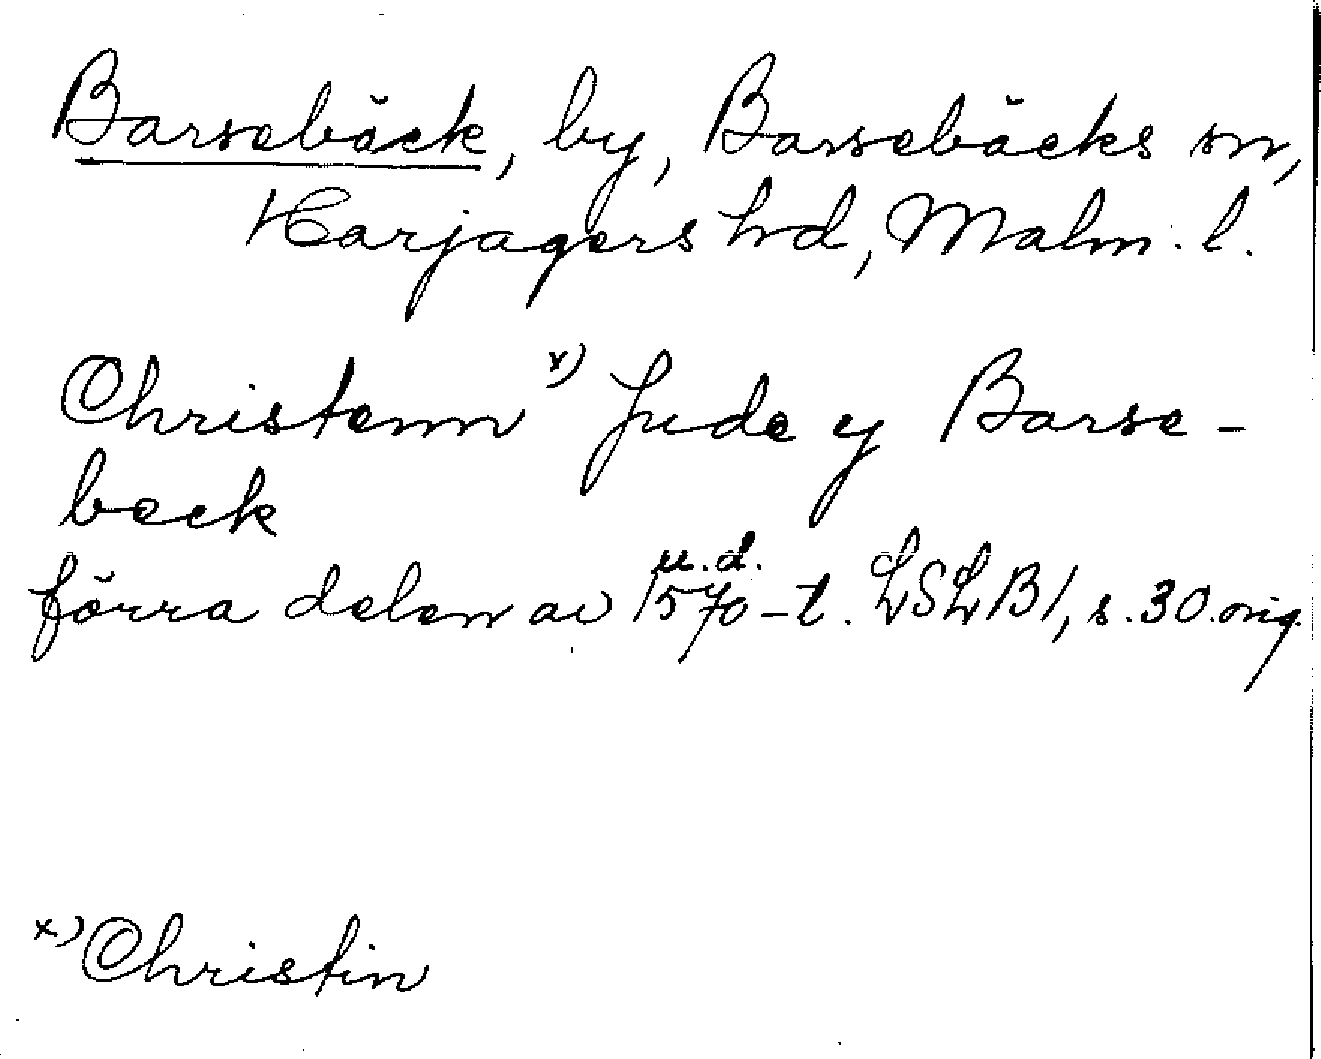 Barsebäck, by, Barsebäcks sn,
Harjagers hd, Malm. l.
Christenn x) Jude y Barse-
beck
u.d.
förra delen av 1570-t. LSLB1, s. 30. orig.
x) Christin